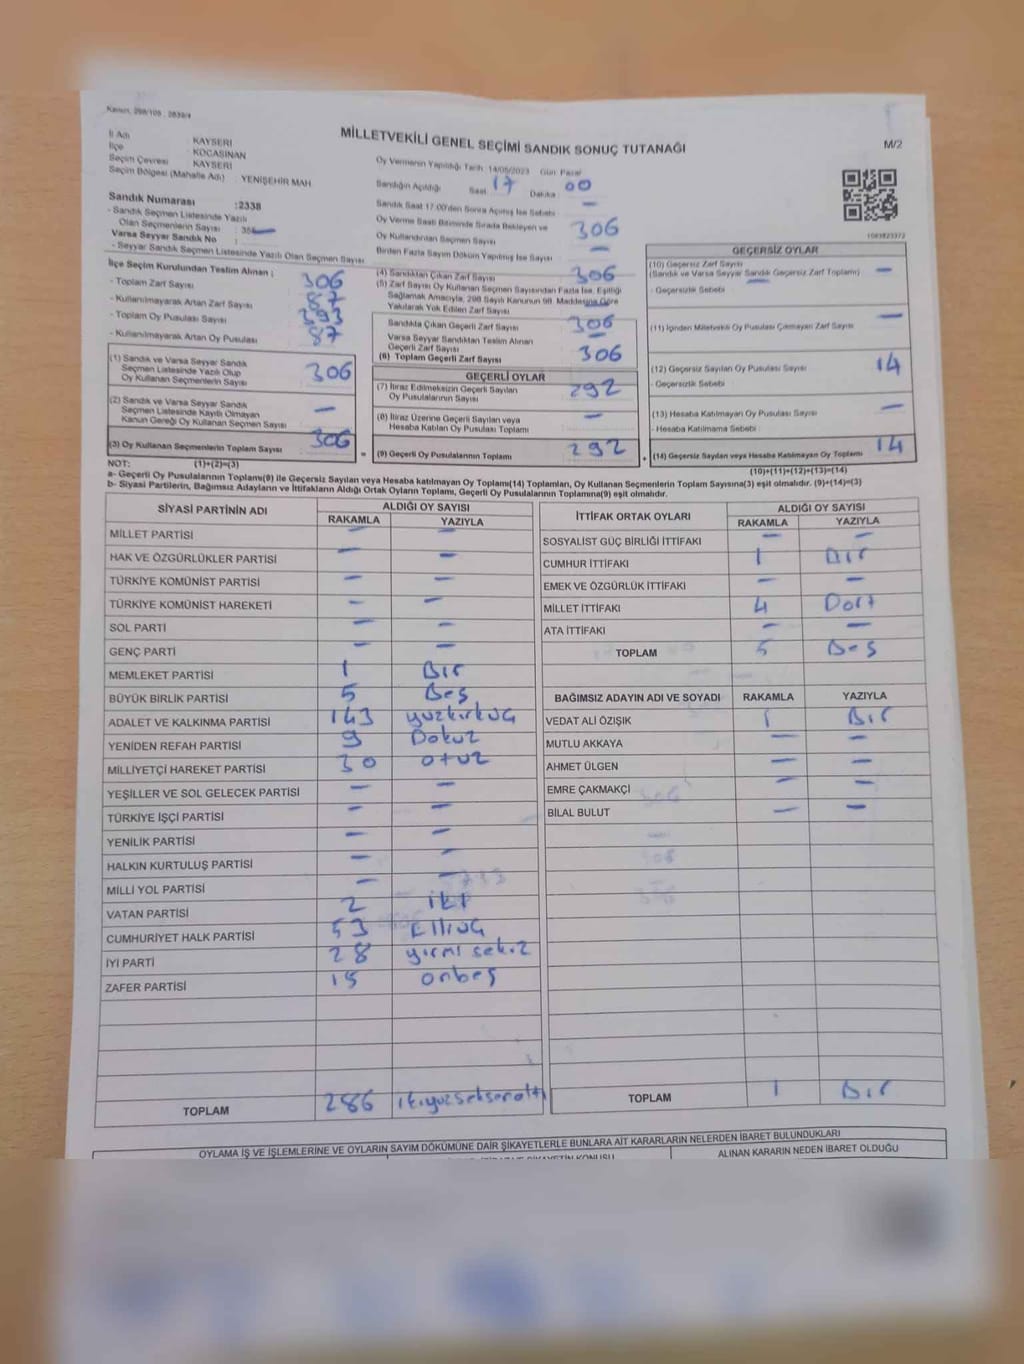 Kanun: 298/105 , 2839/4
MİLLETVEKİLİ GENEL SEÇİMİ SANDIK SONUÇ TUTANAĞI
M/2
İl Adı : KAYSERİ
İlçe : KOCASİNAN
Seçim Çevresi : KAYSERİ
Seçim Bölgesi (Mahalle Adı) : YENİŞEHİR MAH
Sandık Numarası : 2338
- Sandık Seçmen Listesinde Yazılı
Olan Seçmenlerin Sayısı :
Varsa Seyyar Sandık No :
- Seyyar Sandık Seçmen Listesinde Yazılı Olan Seçmen Sayısı
Oy Vermenin Yapıldığı Tarih: 14/05/2023 Gün Pazar
Sandığın Açıldığı Saat 17 Dakika 00
Sandık Saat 17.00'den Sonra Açılmış İse Sebebi –
Oy Verme Saati Bitiminde Sırada Bekleyen ve
Oy Kullandırılan Seçmen Sayısı 306
Birden Fazla Sayım Döküm Yapılmış İse Sayısı –
1083823372
İlçe Seçim Kurulundan Teslim Alınan ;
- Toplam Zarf Sayısı 306
- Kullanılmayarak Artan Zarf Sayısı 87
- Toplam Oy Pusulası Sayısı 393
- Kullanılmayarak Artan Oy Pusulası 87
(1) Sandık ve Varsa Seyyar Sandık
Seçmen Listesinde Yazılı Olup
Oy Kullanan Seçmenlerin Sayısı 306
(2) Sandık ve Varsa Seyyar Sandık
Seçmen Listesinde Kayıtlı Olmayan
Kanun Gereği Oy Kullanan Seçmen Sayısı –
(3) Oy Kullanan Seçmenlerin Toplam Sayısı 306
(4) Sandıktan Çıkan Zarf Sayısı 306
(5) Zarf Sayısı Oy Kullanan Seçmen Sayısından Fazla İse, Eşitliği
Sağlamak Amacıyla, 298 Sayılı Kanunun 98. Maddesine Göre
Yakılarak Yok Edilen Zarf Sayısı –
Sandıkta Çıkan Geçerli Zarf Sayısı 306
Varsa Seyyar Sandıktan Teslim Alınan
Geçerli Zarf Sayısı –
(6) Toplam Geçerli Zarf Sayısı 306
GEÇERLİ OYLAR
(7) İtiraz Edilmeksizin Geçerli Sayılan
Oy Pusulalarının Sayısı 292
(8) İtiraz Üzerine Geçerli Sayılan veya
Hesaba Katılan Oy Pusulası Toplamı –
= (9) Geçerli Oy Pusulalarının Toplamı 292
GEÇERSİZ OYLAR
(10) Geçersiz Zarf Sayısı –
(Sandık ve Varsa Seyyar Sandık Geçersiz Zarf Toplamı)
- Geçersizlik Sebebi –
(11) İçinden Milletvekili Oy Pusulası Çıkmayan Zarf Sayısı –
(12) Geçersiz Sayılan Oy Pusulası Sayısı 14
- Geçersizlik Sebebi
(13) Hesaba Katılmayan Oy Pusulası Sayısı –
- Hesaba Katılmama Sebebi
+ (14) Geçersiz Sayılan veya Hesaba Katılmayan Oy Toplamı 14
NOT: (1)+(2)=(3) (10)+(11)+(12)+(13)=(14)
a- Geçerli Oy Pusulalarının Toplamı(9) ile Geçersiz Sayılan veya Hesaba katılmayan Oy Toplamı(14) Toplamları, Oy Kullanan Seçmenlerin Toplam Sayısına(3) eşit olmalıdır. (9)+(14)=(3)
b- Siyasi Partilerin, Bağımsız Adayların ve İttifakların Aldığı Ortak Oyların Toplamı, Geçerli Oy Pusulalarının Toplamına(9) eşit olmalıdır.
SİYASİ PARTİNİN ADI ALDIĞI OY SAYISI
RAKAMLA YAZIYLA
MİLLET PARTİSİ – –
HAK VE ÖZGÜRLÜKLER PARTİSİ – –
TÜRKİYE KOMÜNİST PARTİSİ – –
TÜRKİYE KOMÜNİST HAREKETİ – –
SOL PARTİ – –
GENÇ PARTİ – –
MEMLEKET PARTİSİ 1 Bir
BÜYÜK BİRLİK PARTİSİ 5 Beş
ADALET VE KALKINMA PARTİSİ 143 yüzkırküç
YENİDEN REFAH PARTİSİ 9 Dokuz
MİLLİYETÇİ HAREKET PARTİSİ 30 otuz
YEŞİLLER VE SOL GELECEK PARTİSİ – –
TÜRKİYE İŞÇİ PARTİSİ – –
YENİLİK PARTİSİ – –
HALKIN KURTULUŞ PARTİSİ – –
MİLLİ YOL PARTİSİ – –
VATAN PARTİSİ 2 iki
CUMHURİYET HALK PARTİSİ 53 Elliüç
İYİ PARTİ 28 yirmi sekiz
ZAFER PARTİSİ 15 onbeş
TOPLAM 286 ikiyüzseksenaltı
İTTİFAK ORTAK OYLARI ALDIĞI OY SAYISI
RAKAMLA YAZIYLA
SOSYALİST GÜÇ BİRLİĞİ İTTİFAKI – –
CUMHUR İTTİFAKI 1 Bir
EMEK VE ÖZGÜRLÜK İTTİFAKI – –
MİLLET İTTİFAKI 4 Dört
ATA İTTİFAKI – –
TOPLAM 5 Beş
BAĞIMSIZ ADAYIN ADI VE SOYADI RAKAMLA YAZIYLA
VEDAT ALİ ÖZIŞIK 1 Bir
MUTLU AKKAYA – –
AHMET ÜLGEN – –
EMRE ÇAKMAKÇİ – –
BİLAL BULUT – –
TOPLAM 1 Bir
OYLAMA İŞ VE İŞLEMLERİNE VE OYLARIN SAYIM DÖKÜMÜNE DAİR ŞİKAYETLERLE BUNLARA AİT KARARLARIN NELERDEN İBARET BULUNDUKLARI
ALINAN KARARIN NEDEN İBARET OLDUĞU